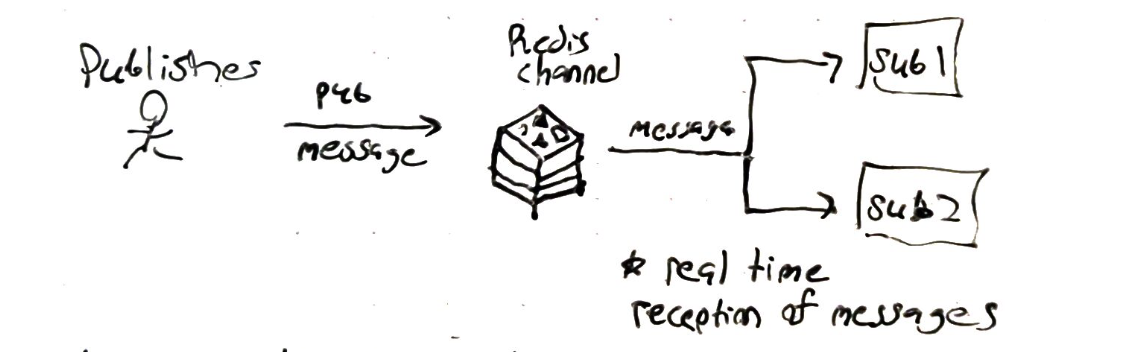 Publishes
pub
message
Redis
channel
message
sub1
sub2
* real time
reception of messages